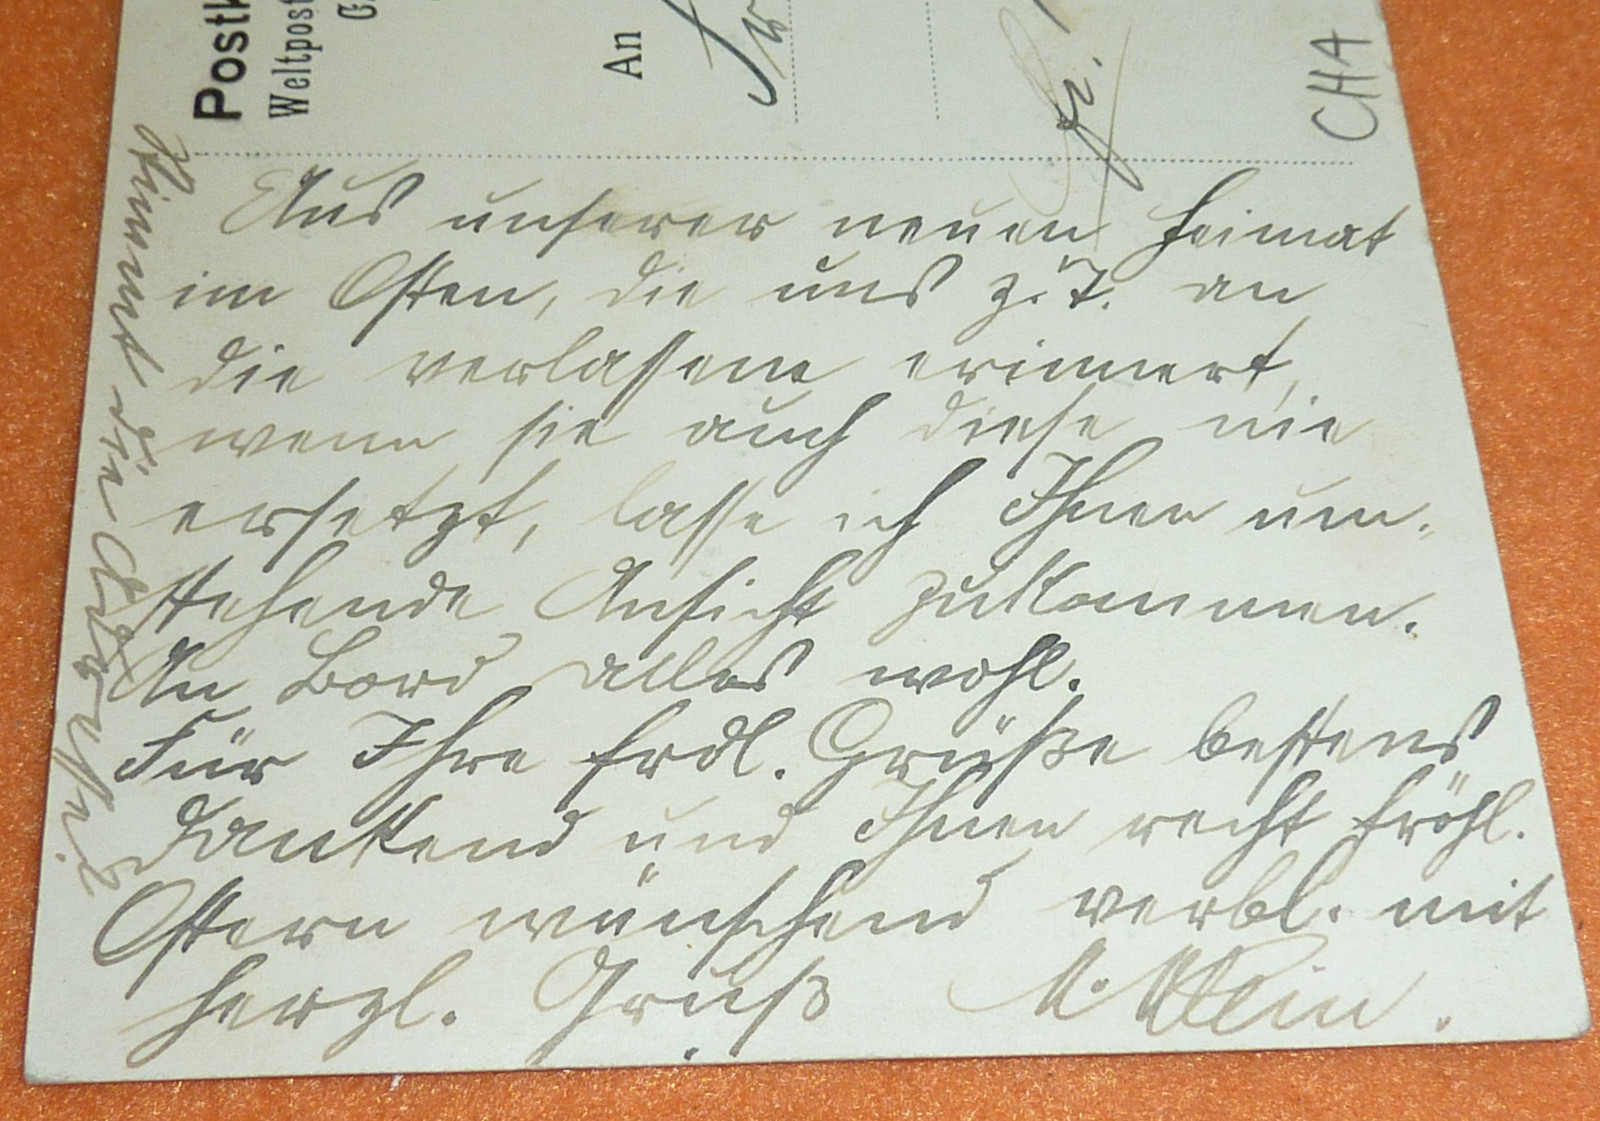 Postk
Weltpost
An
CHA
Aus unserer neuen Heimat
im Osten, die uns z. T. an
die verlassene erinnert,
wenn sie auch diese nie
ersetzt, lasse ich Ihnen um-
stehende Ansicht zukommen.
An Bord alles wohl.
Für Ihre frdl. Grüße bestens
dankend und Ihnen recht fröhl.
Ostern wünschend verbl. mit
herzl. Gruß A. Klein.
Kommt die